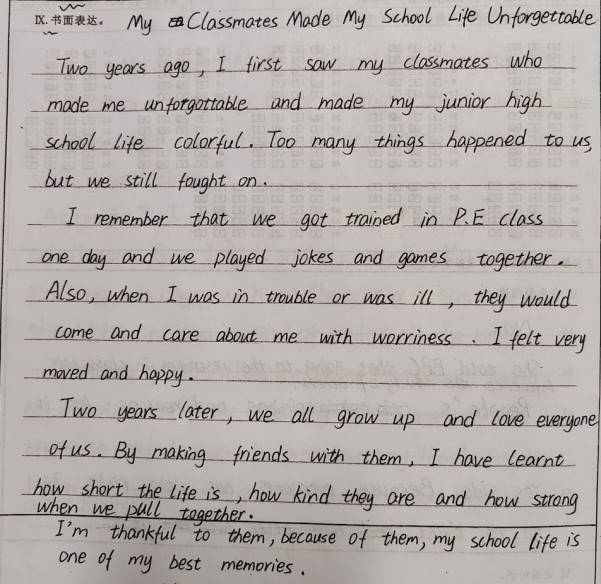 IX. 书面表达。 My Classmates Made My School Life Unforgettable
Two years ago, I first saw my classmates who
made me unforgottable and made my junior high
school life colorful. Too many things happened to us,
but we still fought on.
I remember that we got trained in P.E class
one day and we played jokes and games together.
Also, when I was in trouble or was ill, they would
come and care about me with worriness. I felt very
moved and happy.
Two years later, we all grow up and love everyone
of us. By making friends with them, I have learnt
how short the life is, how kind they are and how strong
when we pull together.
I'm thankful to them, because of them, my school life is
one of my best memories.